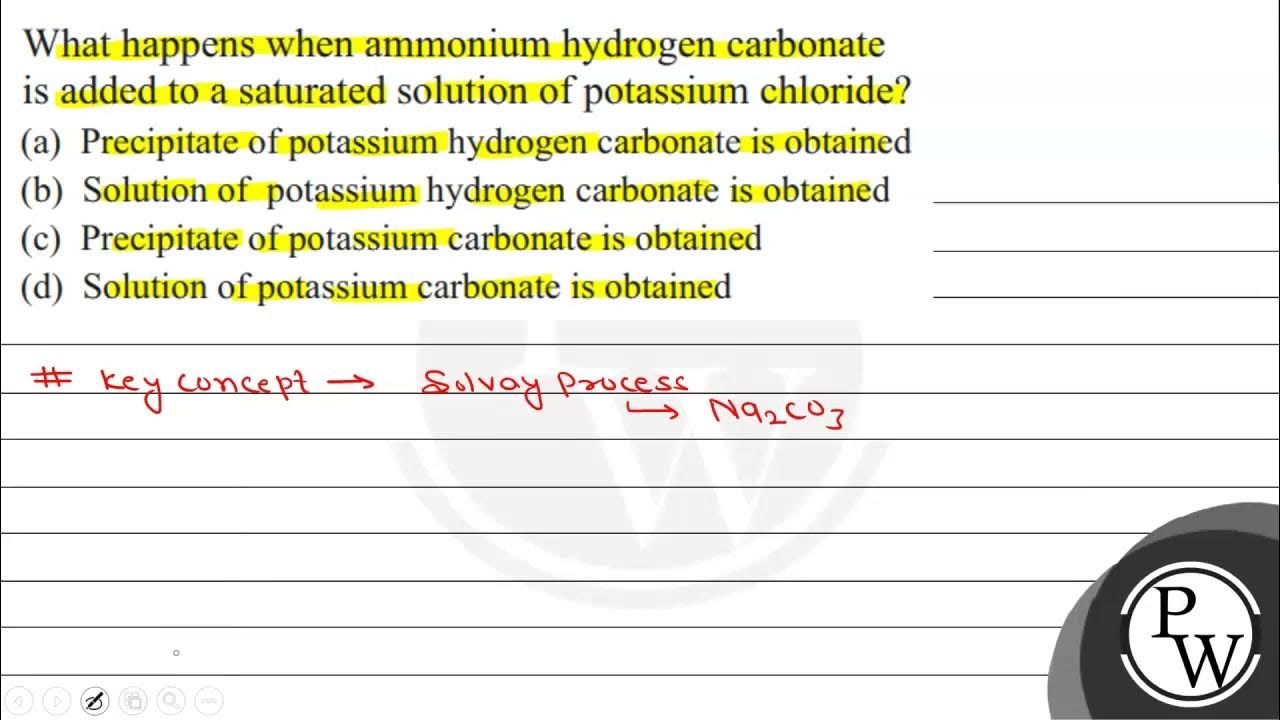 What happens when ammonium hydrogen carbonate
is added to a saturated solution of potassium chloride?
(a) Precipitate of potassium hydrogen carbonate is obtained
(b) Solution of potassium hydrogen carbonate is obtained
(c) Precipitate of potassium carbonate is obtained
(d) Solution of potassium carbonate is obtained
# Key concept → Solvay Process
↳ Na₂CO₃
W
P
W